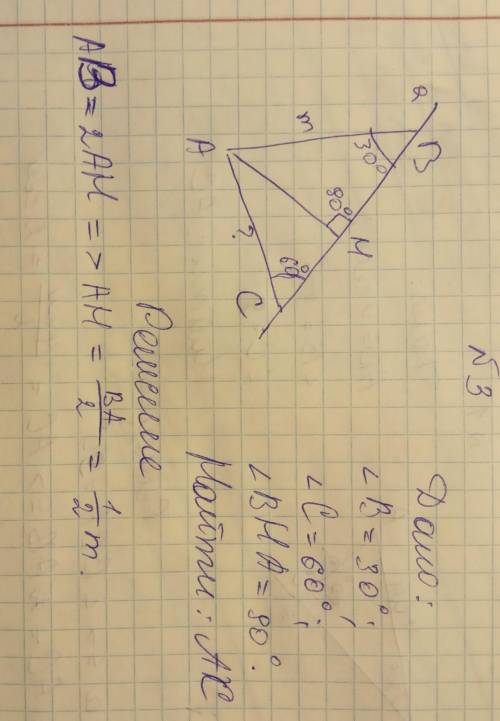 N3
Дано:
∠B = 30°;
∠C = 60°;
∠BHA = 90°.
Найти: AC
a
B
30°
m
90°
H
A
?
60°
C
Решение
AB = 2AH => AH = BA/2 = 1/2 m.